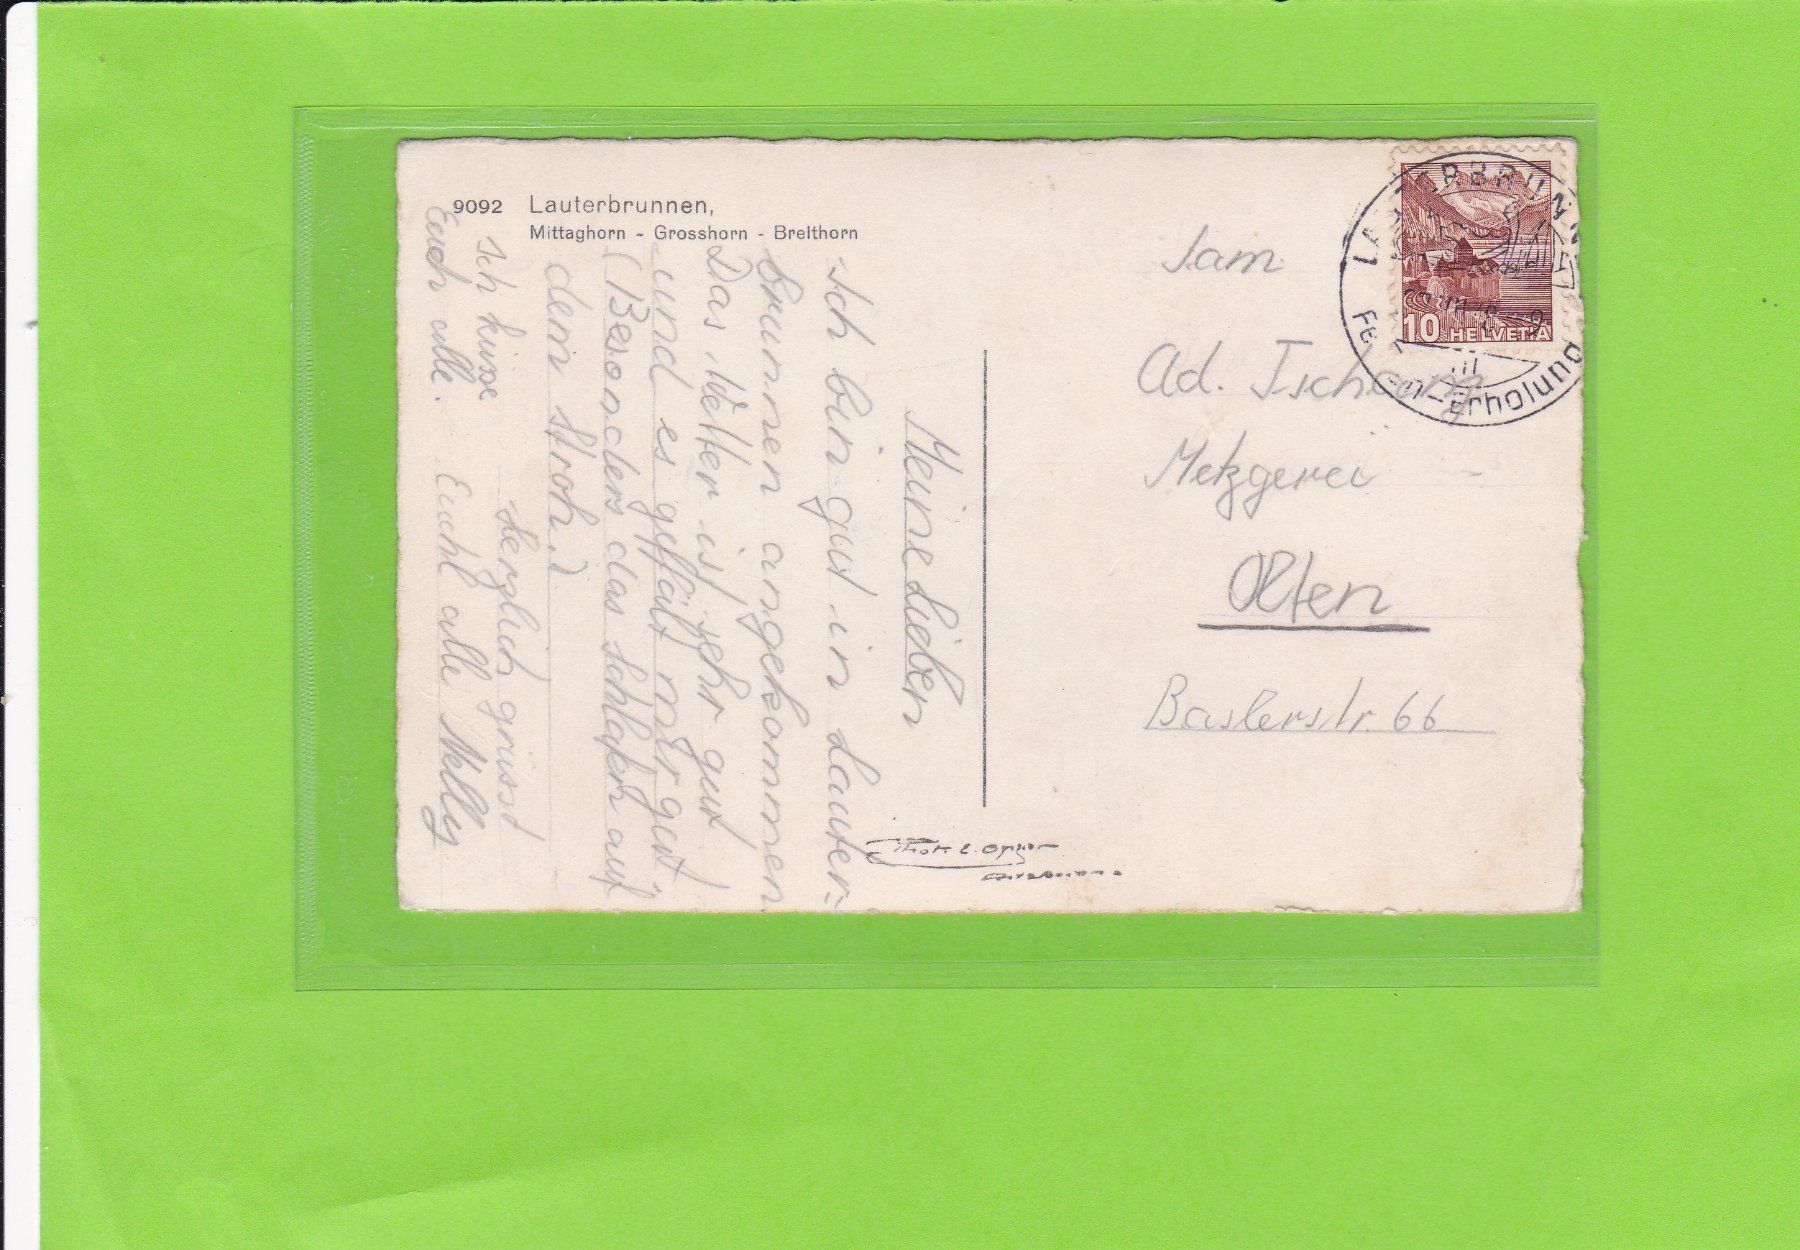 9092 Lauterbrunnen,
Mittaghorn - Grosshorn - Breithorn
Meine Lieben
Ich bin gut in Lauter-
brunnen angekommen
Das Wetter ist sehr gut
und es gefält mir gut
(Besonders das schlafen auf
dem Stroh.)
Herzlich grüsst
Euch alle Nelly
Ich küsse
Euch alle.
Fam
Ad. Tschour
Metzgerei
Olten
Baslerstr. 66
LAUTERBRUNNEN
Erholung
10 HELVETIA